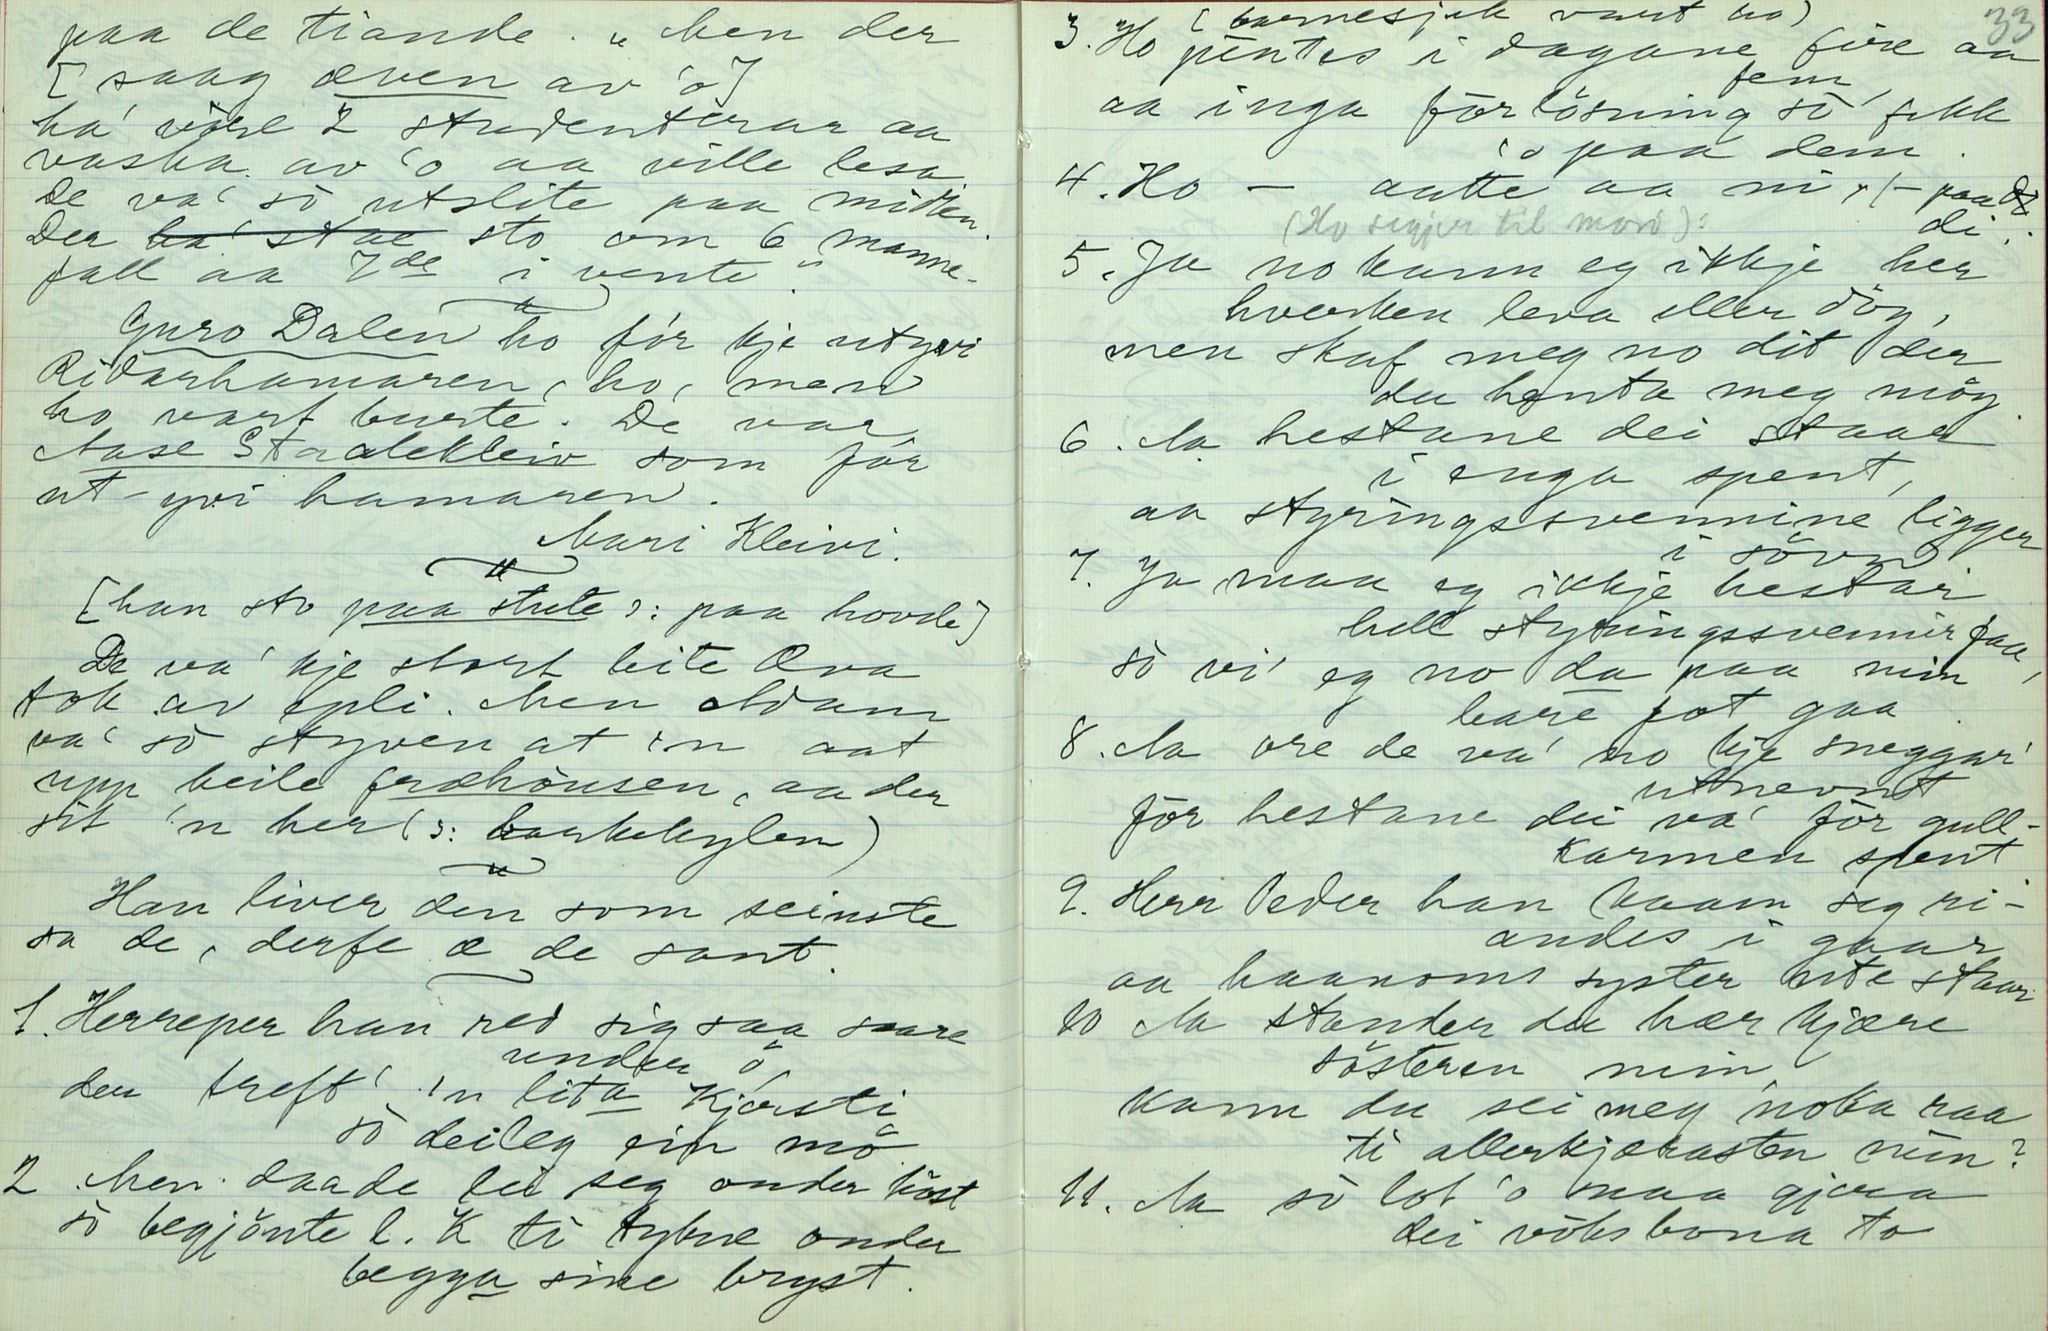 paa de tiande. „ Men der
[saag æven av 'o]
ha' våre 2 studenterar aa
vaska av 'o aa ville lesa
De va' så utslite paa midten.
Der ha' stae sto om 6 manne-
fall aa 7de i vente."
Guro Dalen ho fór kje utyvi
Ridarhamaren, ho, men
ho vart burte. De var
Aase Staalekleiv som fór
ut-yvi hamaren.
Mari Kleivi.
[han sto paa stute ɔ: paa hovde]
De va' kje stort bite Æva
tok av epli. Men Adam
va' så styven at 'n aat
upp heile fræhåusen, aa der
sit 'n her (ɔ: barkekylen)
Han liver den som seinste
sa de, derfe æ de sant.
1. Herreper han red sig saa saare
under ö
der treft' 'n lita Kjersti
så deileg ein mö
2. Men daade lei seg onder höst
så begjönte l. K ti tykne onder
begga sine bryst.
33
(barnesjuk vart ho)
3. Ho pintes i dagane fire aa
fem
aa inga forlösning så fekk
'o paa dem.
4. Ho — aatte aa ni, /— paa
di.
(Ho segjer til mori):
5. Ja no kann eg ikkje her
hverken leva eller döy,
men skaf meg no dit der
du henta meg möy.
6. Aa hestane dei staar
i enga spent,
aa styringssvennine ligger
i sövn
7. Ja maa eg ikkje hestar
hell styringssvennir faa,
så vi' eg no da paa min
bare fot gaa.
8. Aa ore de va' no kje sneggar'
utnevnt
för hestane dei va' för gull-
karmen spent
9. Herr Peder han kaam seg ri-
andes i gaar
aa haanoms syster ute staar
10 Aa stander du hær kjære
sösteren min
kann du sei meg noka raa
ti allerkjærasten min?
11. Aa så lot 'o maa gjera
dei vöksbona to